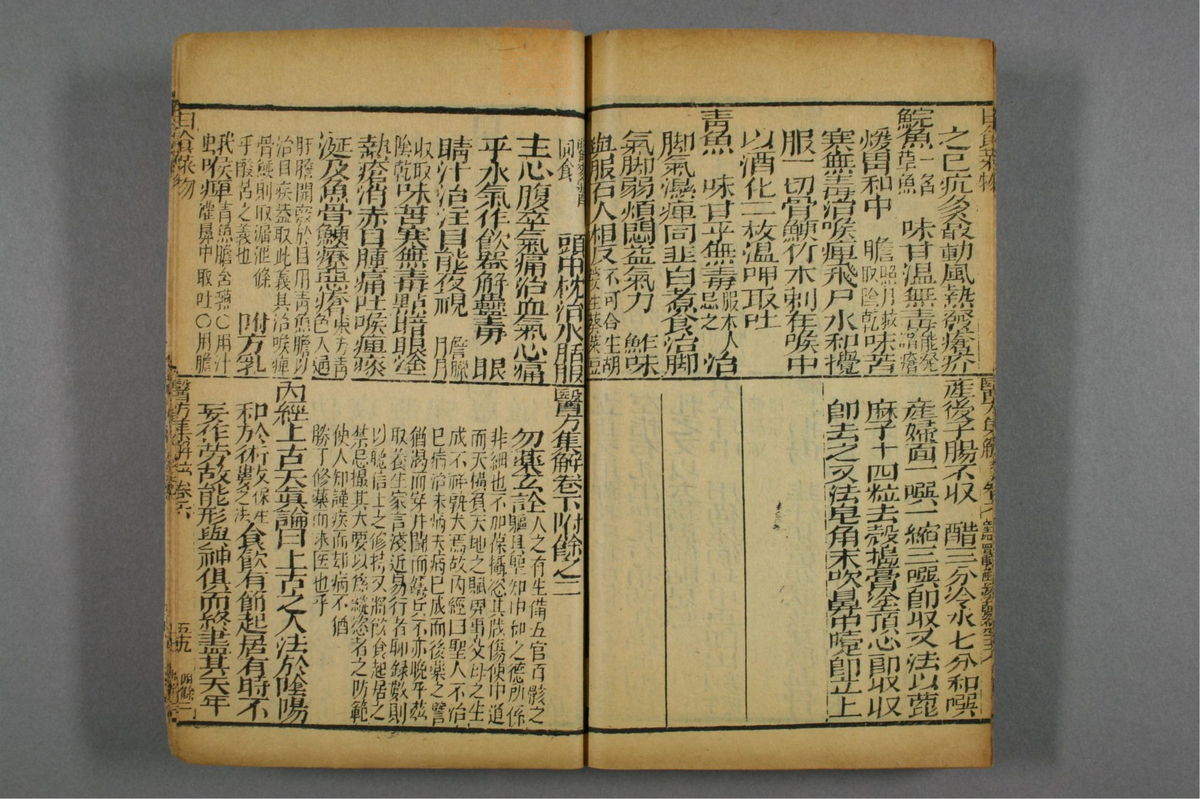 之已疣多致動風熱發瘡疥
鯇魚一名草魚 味甘溫無毒能發諸瘡
煖胃和中 膽臘月收取陰乾味苦
寒無毒治喉痺飛尸水和攪
服一切骨鯁竹木刺在喉中
以酒化二枚溫呷取吐
青魚 味甘平無毒服术人忌之治
脚氣濕痺同韭白煮食治脚
氣脚弱煩悶益氣力 鮓味
與服石人相反不可合生胡荽生葵菜豆
藿麥醬同食 頭中枕治水 服
主心腹卒氣痛治血氣心痛
平水氣作飲器解蠱毒 眼
睛汁治注目能夜視 膽臘月
收取陰乾味苦寒無毒點暗眼塗
熱瘡消赤目腫痛吐喉痺痰
涎及魚骨鯁療惡瘡東方青色入通
肝膽開竅於目用青魚膽以
治目疾蓋取此義其治喉痺
骨鯁則取漏泄係
乎酸苦之義也 附方乳
蛾喉痺青魚膽含嚥○用汁
灌鼻中取吐○用膽
日食菜物
產後子腸不收 醋三分冷水七分和噀
產婦面一噀一縮三噀即收又法以蓖
麻子十四粒去殼搗膏塗頂心即收收
即去之又法皂角末吹鼻中嚏即上
醫方集解卷下附餘之二
勿藥玄詮人之有生備五官百骸之
軀具聖知中和之德所係
非細也不加保攝恣其戕傷使中道
而夭橫負天地之賦畀辜父母之生
成不祥孰大焉故內經曰聖人不治
已病治未病夫病已成而後藥之譬
猶渴而穿井鬪而鑄兵不亦晚乎茲
取養生家言淺近易行者聊錄數則
以聽信士之修持又將飲食起居之
禁忌撮其大要以爲縱恣者之防範
使人知謹疾而却病不猶
勝于修藥而求醫也乎
內經上古天真論曰上古之人法於陰陽
和於術數保生之法食飲有節起居有時不
妄作勞故能形與神俱而終盡其天年
醫方集解 卷六 五九